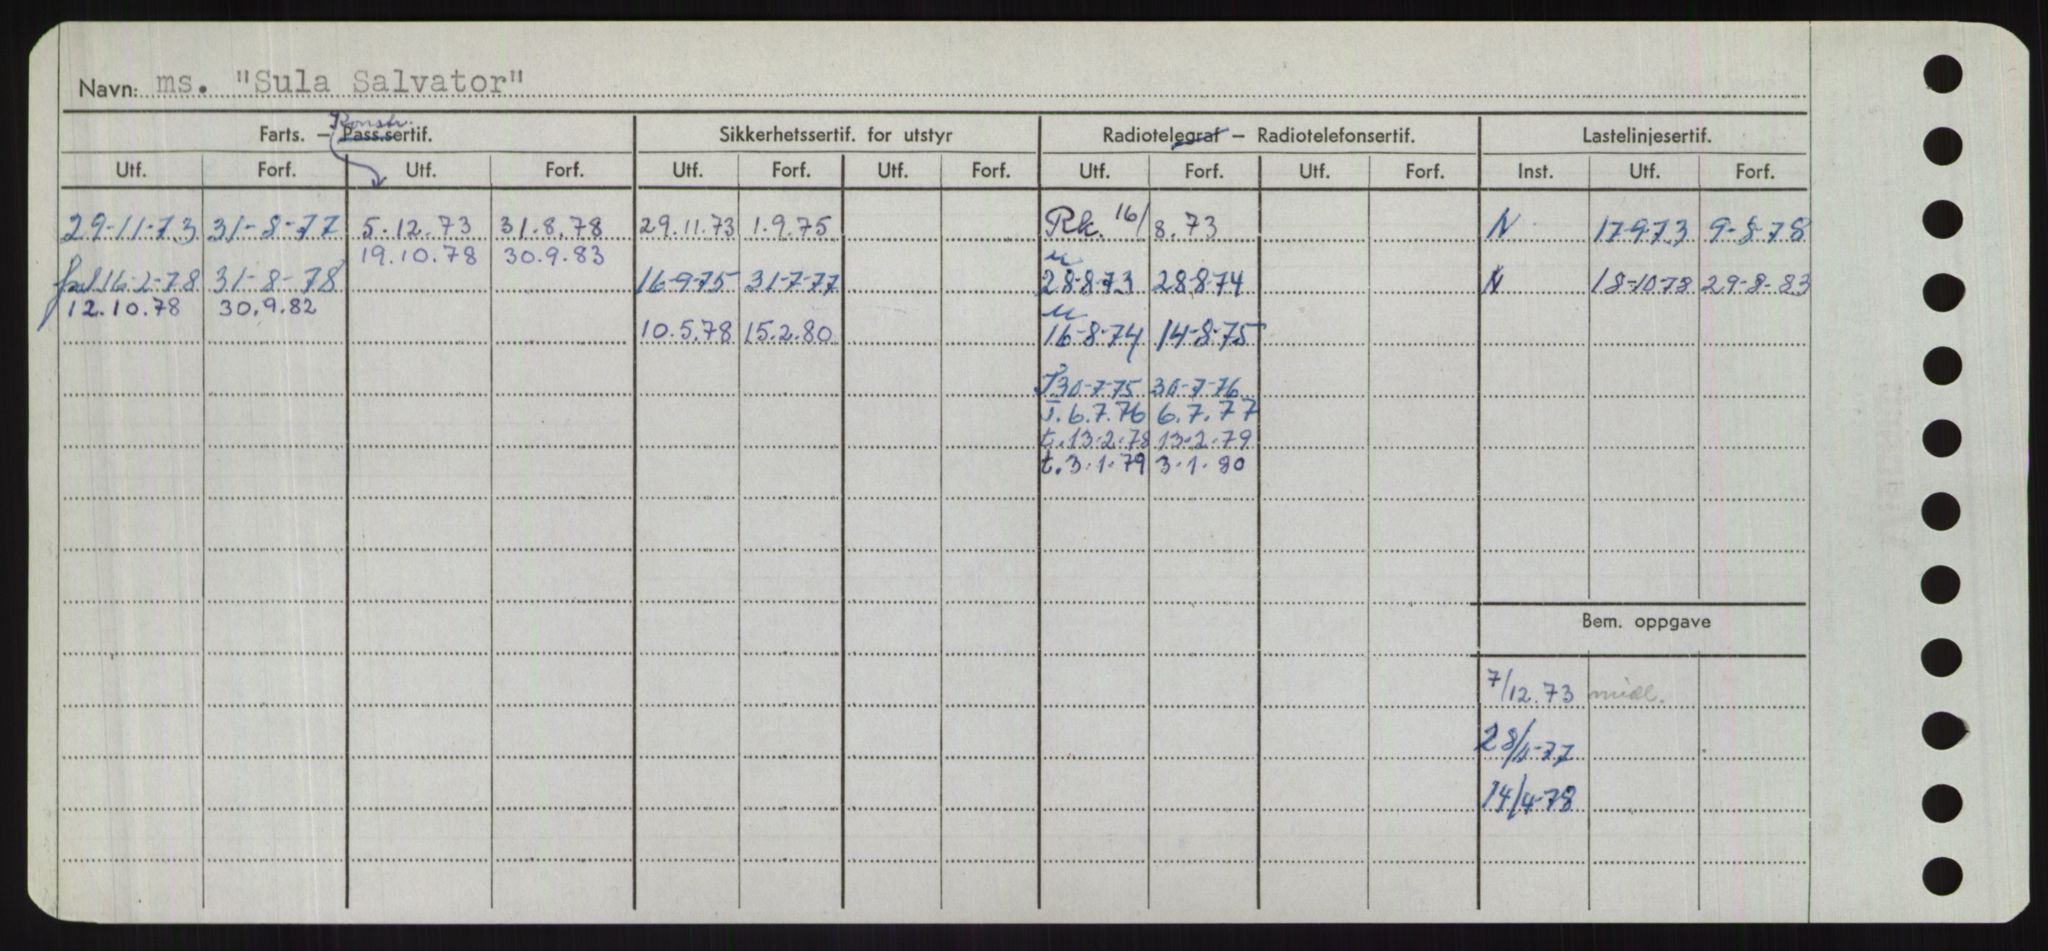 Navn: ms. "Sula Salvator"
Konstr.
Farts. – Pass.sertif. Sikkerhetssertif. for utstyr Radiotelegraf – Radiotelefonsertif. Lastelinjesertif.
Utf. Forf. Utf. Forf. Utf. Forf. Utf. Forf. Utf. Forf. Utf. Forf. Inst. Utf. Forf.
29-11-73 31-8-77 5.12.73 31.8.78 29.11.73 1.9.75 Rk. 16/8.73 N 17-9-73 9-8-78
19.10.78 30.9.83
16-2-78 31-8-78 16-9-75 31-7-77 28-8-73 28-8-74 N 18-10-78 29-8-83
12.10.78 30.9.82
10.5.78 15.2.80 16-8-74 14-8-75
T.30-7-75 30-7-76
T.6.7.76 6.7.77
t.13-2-78 13-2-79
t.3-1-79 3-1-80
Bem. oppgave
7/12.73 midl.
28/-77
14/4-78